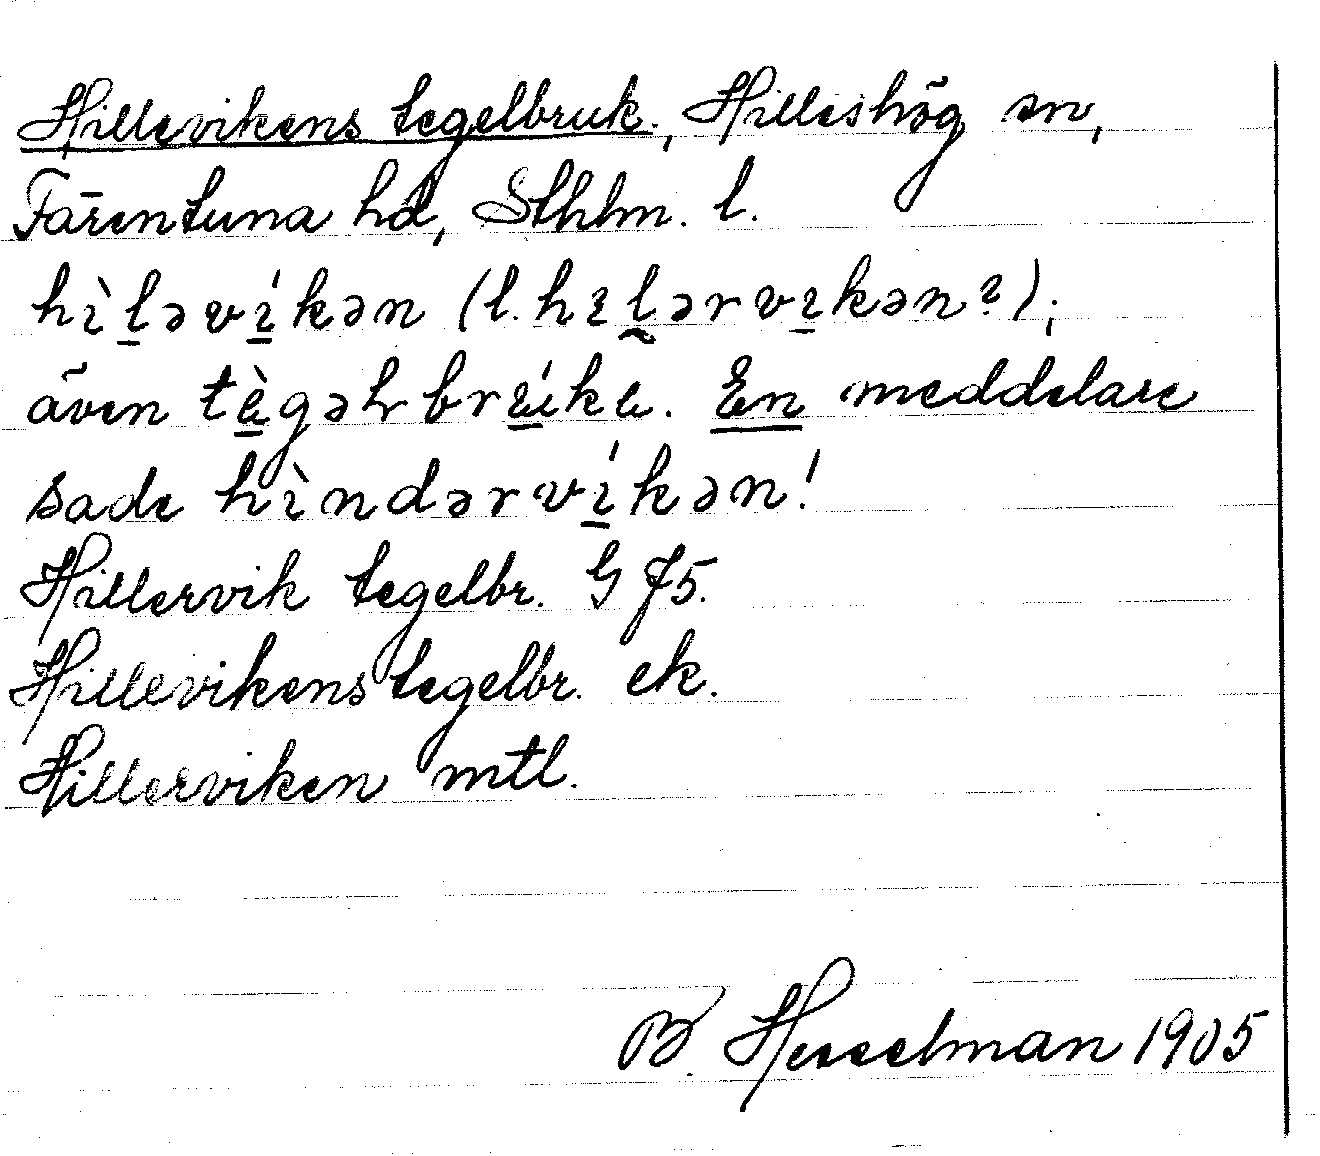 Hillevikens tegelbruk, Hilleshög sn,
Färentuna hd, Sthlm. l.
hìl̠əví̠kən (l. hɪl̰ərvɪ̠kən?);
även tè̠gəl-brʉ̠́kʉ. En meddelare
sade hìndərví̠kən!
Hillervik tegelbr. G J5.
Hillevikens tegelbr. ek.
Hillerviken mtl.
B. Hesselman 1905